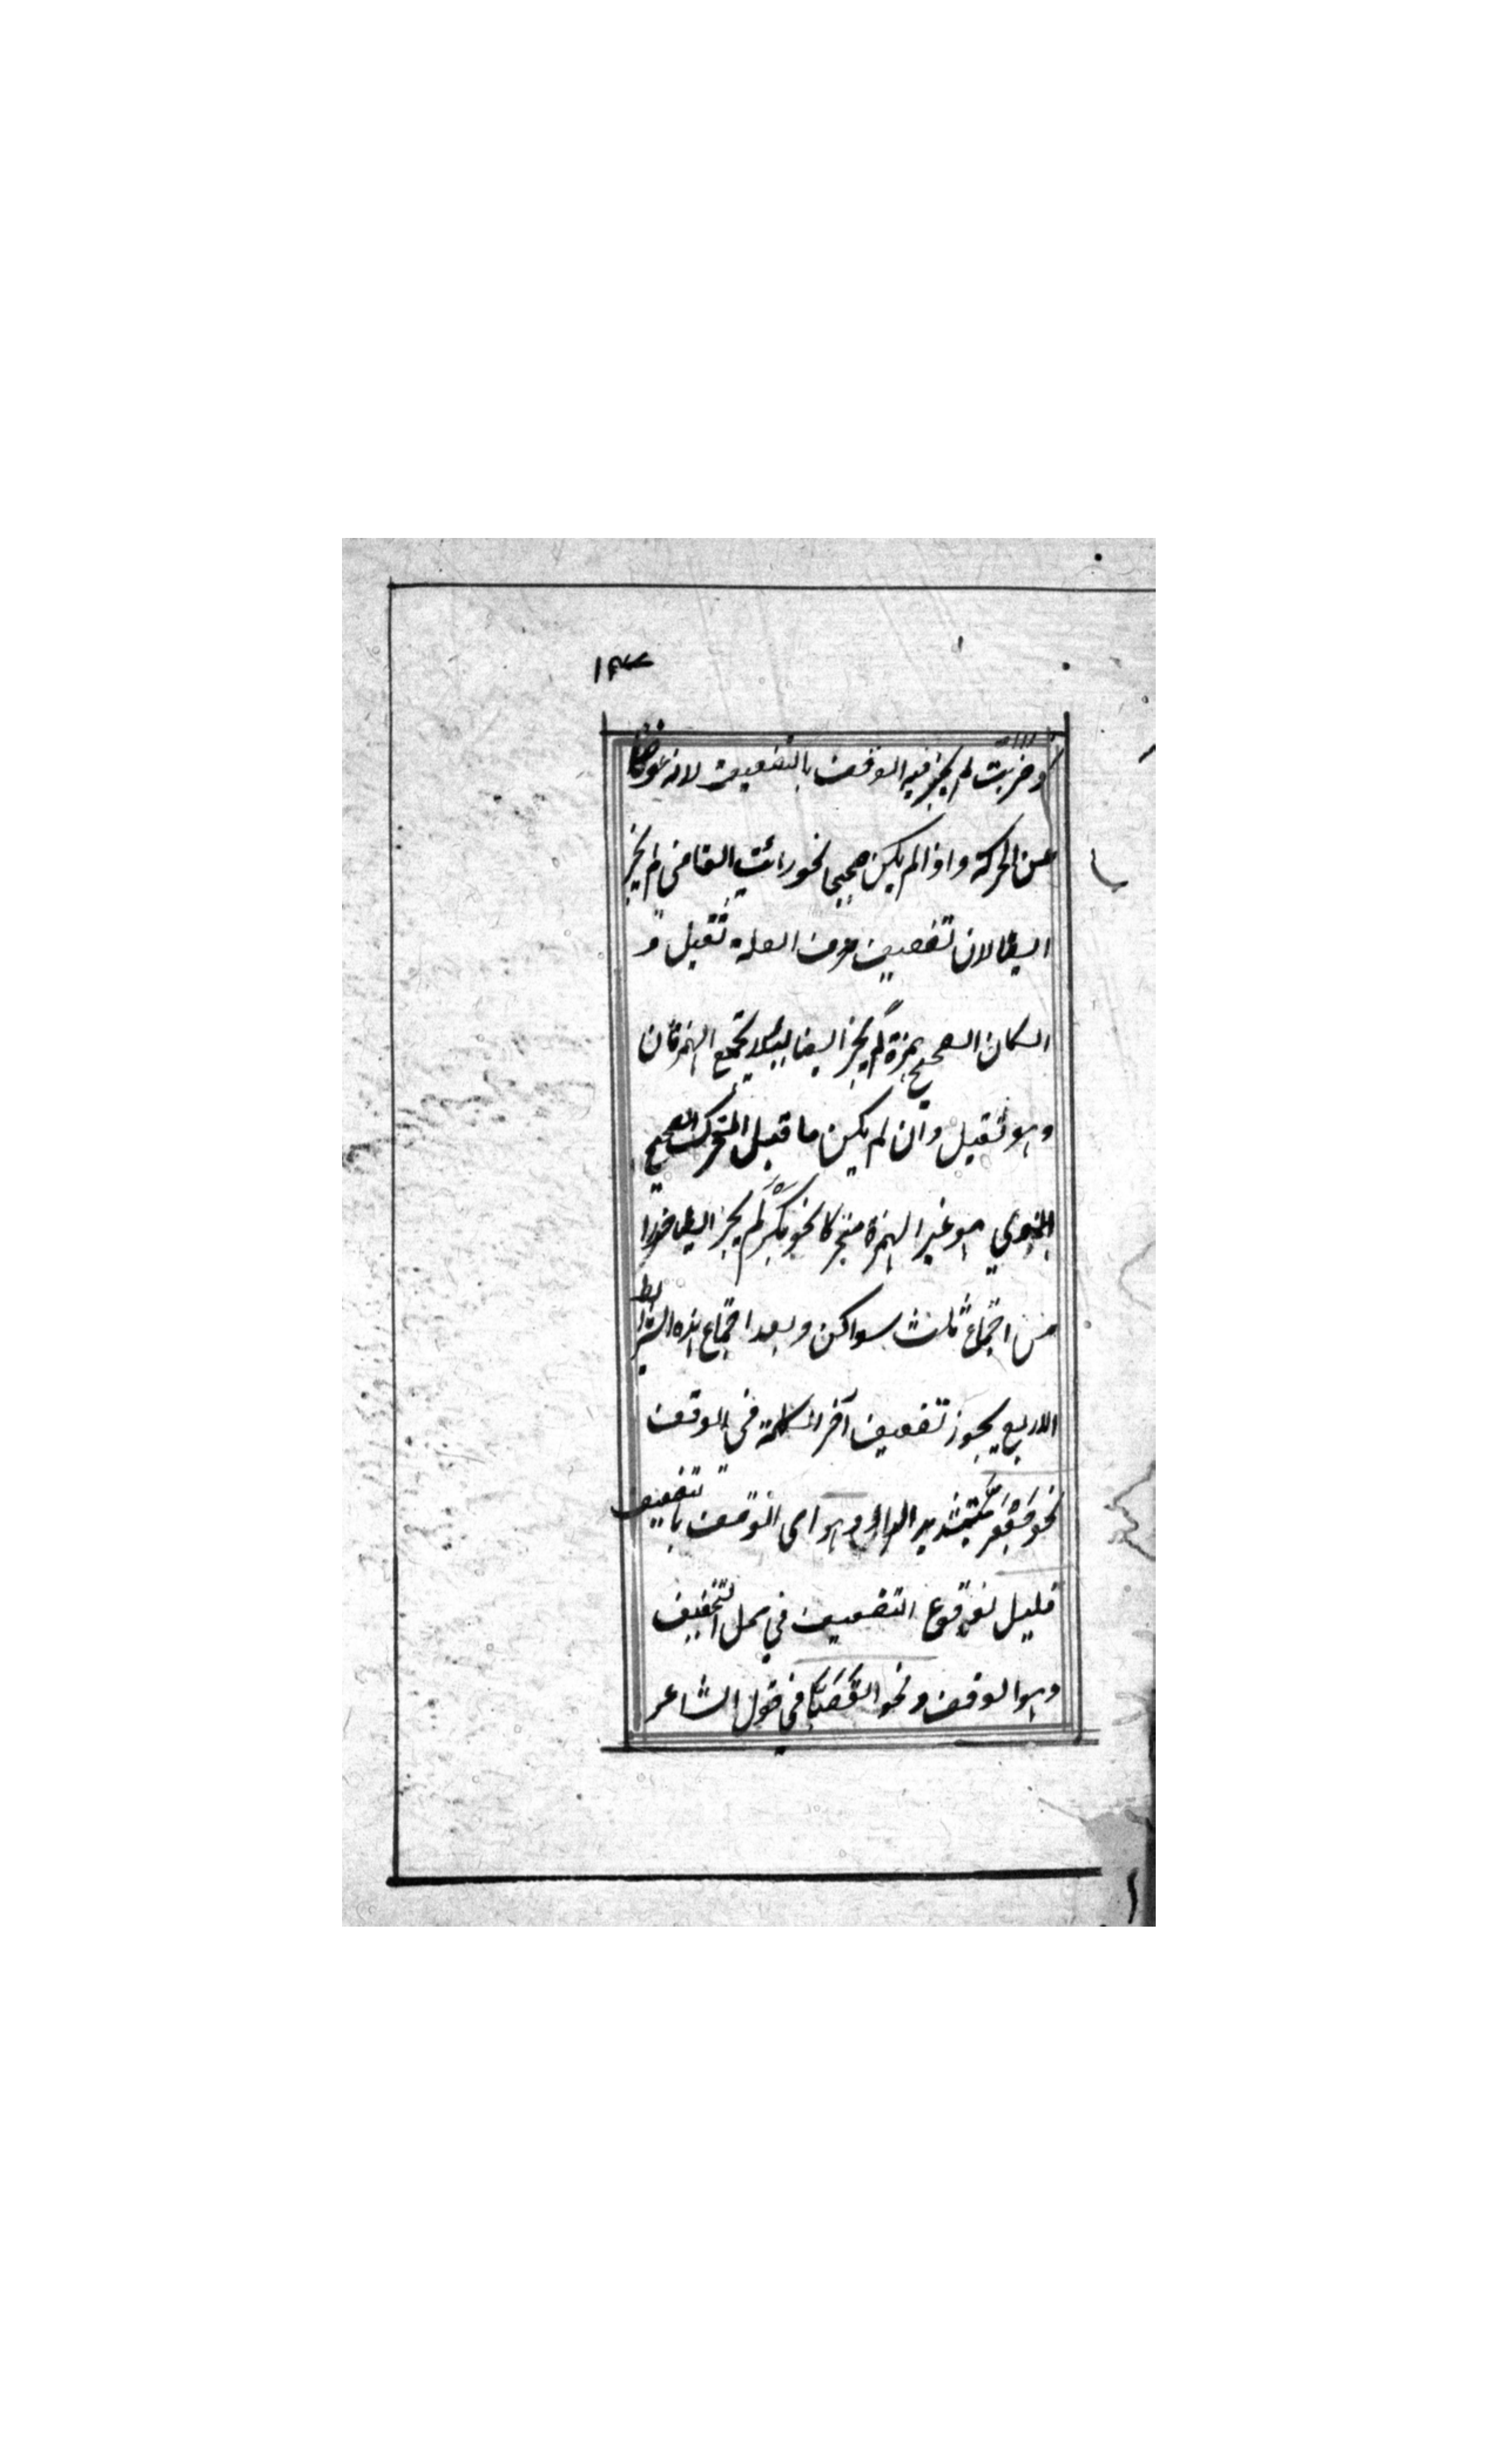 وضربت لم يجز فيه الوقف بالتضعيف لانه عوضا
عن الحركة واذا لم يكن صحيحا نحو رائت القاضى لم يجز
ايضا لان تضعيف حرف العلة ثقيل و
ان كان الصحيح همزة لم يجز ايضا لئلا يجتمع الهمزتان
وهو ثقيل وان لم يكن ما قبل المتحرك الصحيح
الذي هو غير الهمزة متحركا نحو بكر لم يجز ايضا فرارا
من اجتماع ثلث سواكن وبعد اجتماع هذه الشرايط
الاربع يجوز تضعيف آخر الكلمة في الوقف
نحو جعفر بتشديد الراء وهو اى الوقف بالتضعيف
قليل لوقوع التضعيف في محل التخفيف
وهو الوقف ونحو القصبا في قول الشاعر